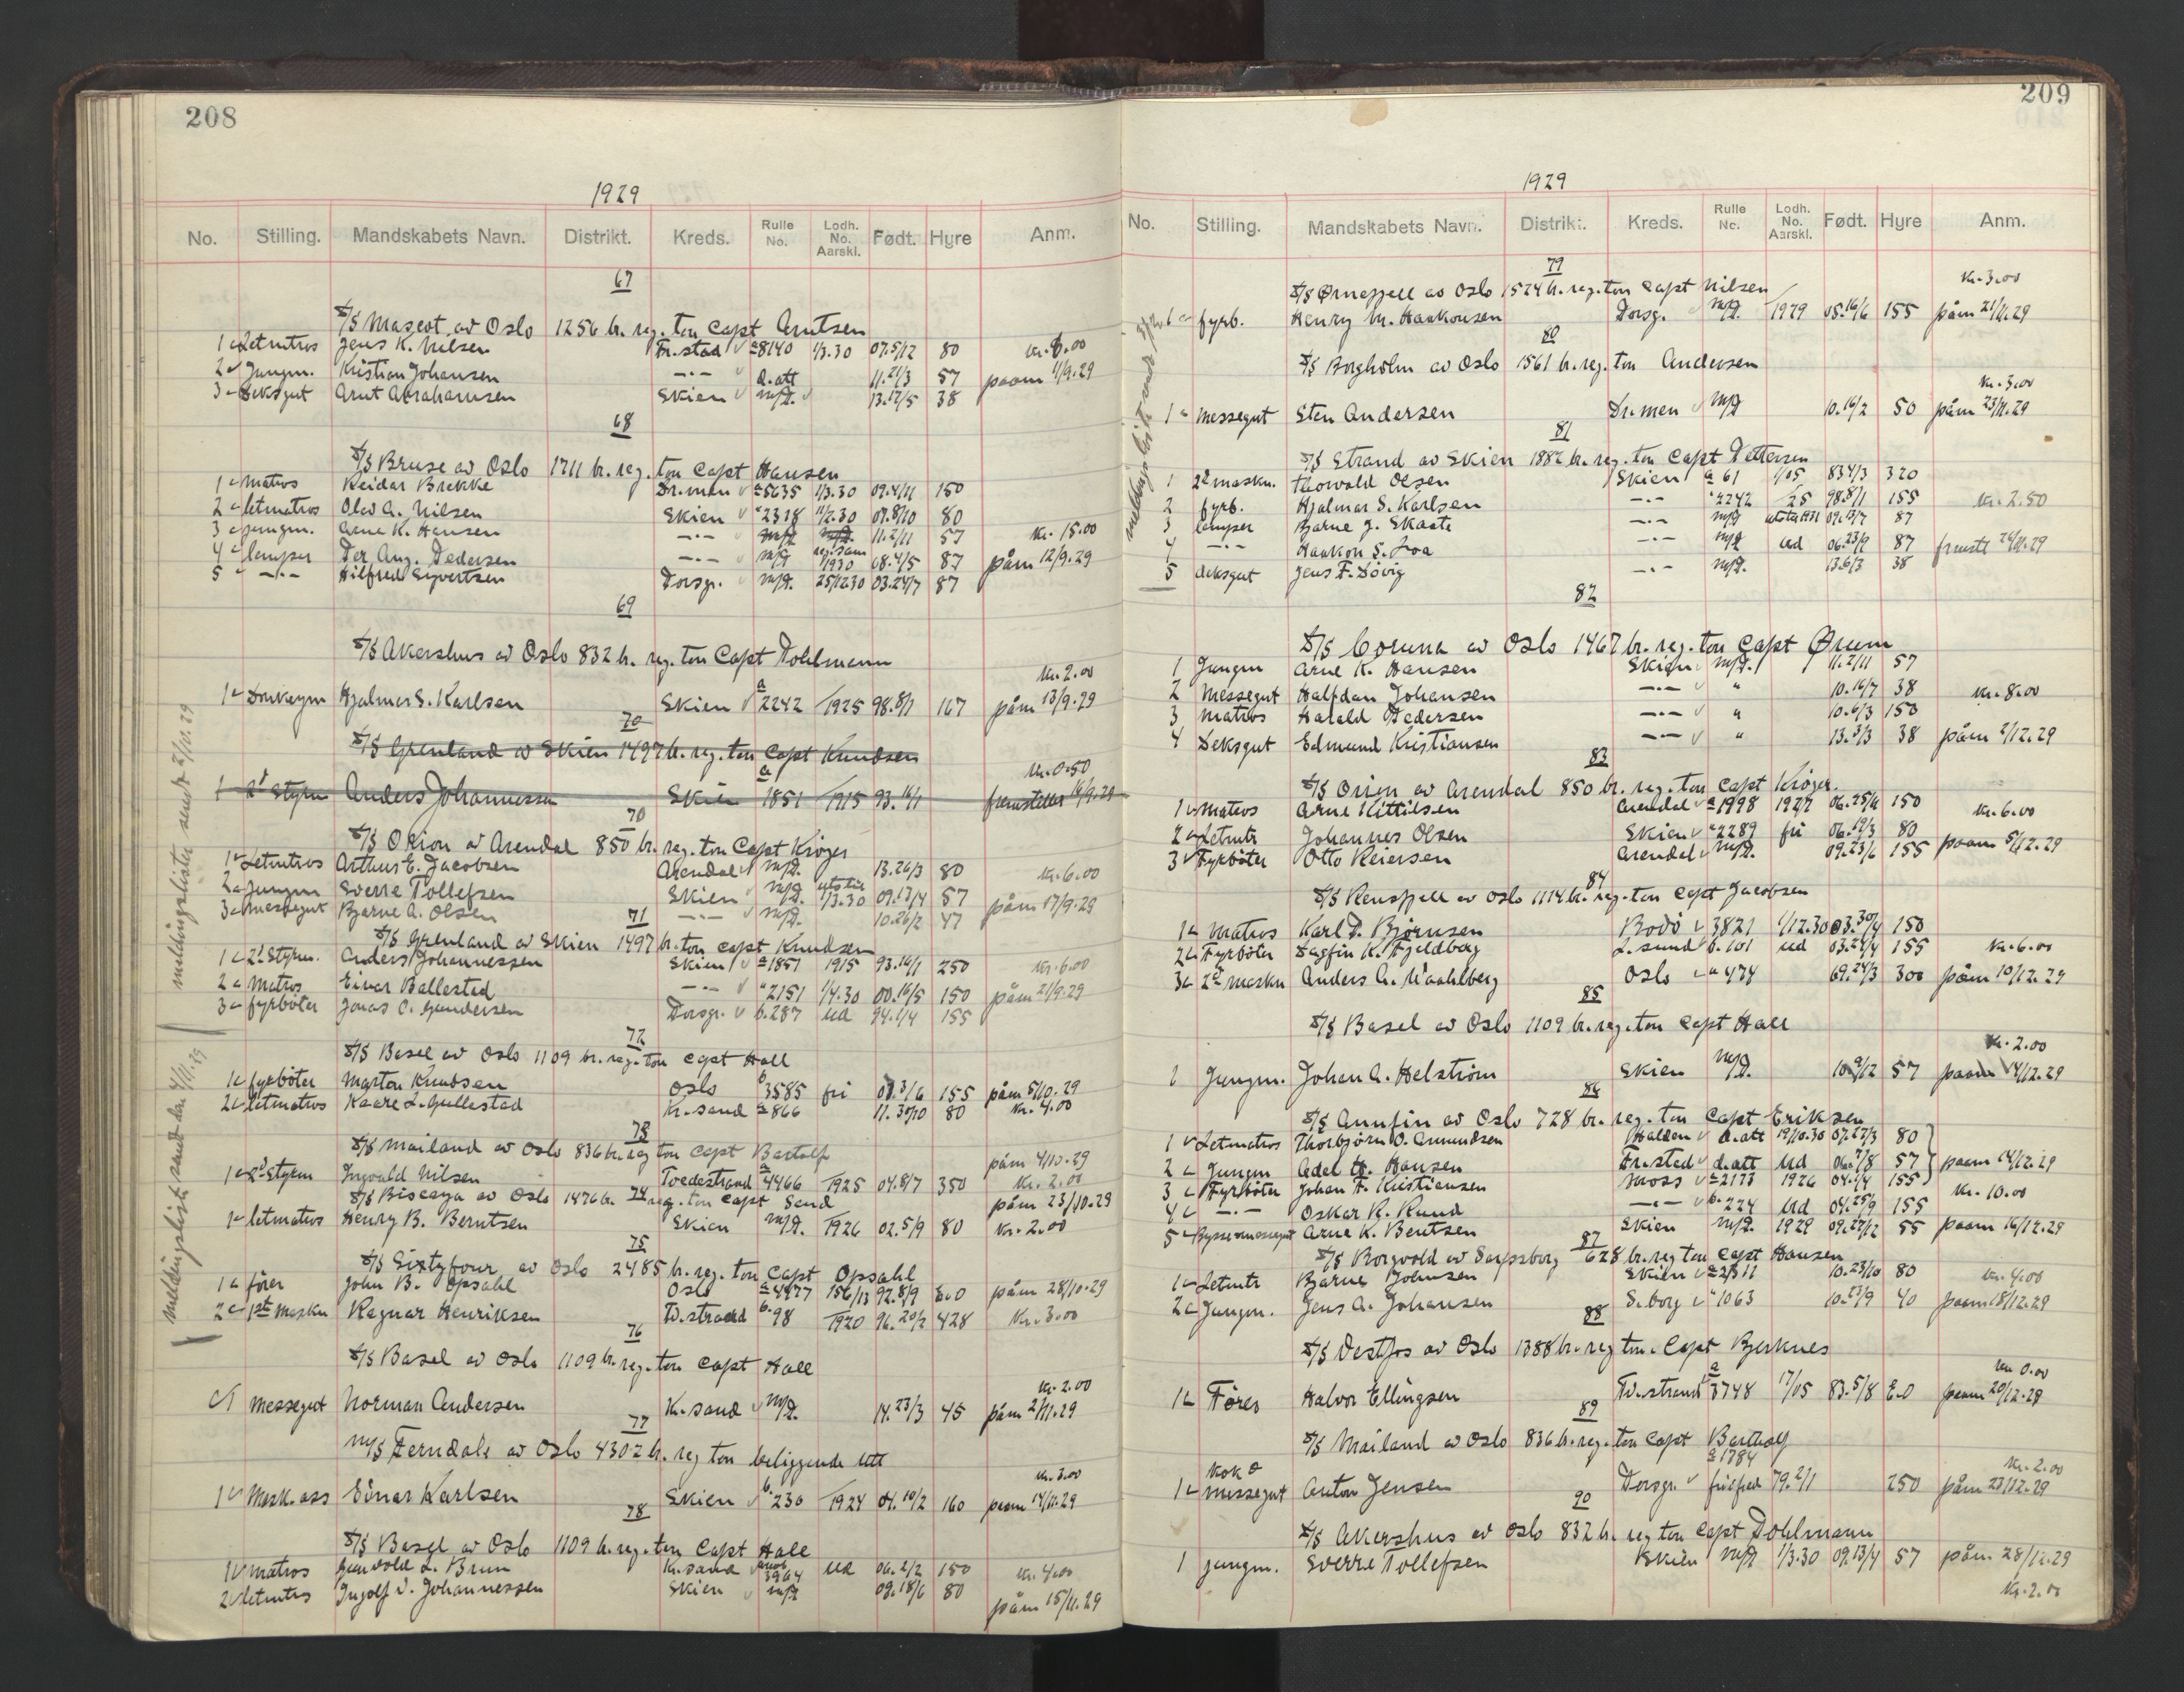 208
1929
No. Stilling. Mandskabets Navn. Distrikt. Kreds. Rulle No. Lodh. No. Aarskl. Født. Hyre Anm.
67
S/S Mascot av Oslo 1256 br. reg. ton Capt Arntsen
1 Letmtros Jens K. Nilsen Fr.stad a 8140 1/3.30 07.5/12 80 kr. 6.00
2 Jungm. Kristian Johansen —·— d.att 11.21/3 57 paam 11/9.29
3 Deksgut Arnt Abrahamsen Skien m/p. 13.17/5 38
68
S/S Bruse av Oslo 1711 br. reg. ton Capt Hansen
1 Matros Reidar Brekke Dr.men a 5635 1/3.30 09.4/11 150
2 letmatros Olav A. Nilsen Skien " 2318 11/2.30 07.8/10 80
3 jungm. Arne K. Hansen —·— m/p. 11.2/11 57 kr. 15.00
4 lemper Per Aug. Pedersen —·— m/p 1/1930 08.4/5 87 påm 12/9.29
5 —·— Hilfred Syvertsen Porsgr. m/p. 25/12.30 03.24/7 87
69
S/S Akershus av Oslo 832 br. reg. ton Capt Pohlmann
kr. 2.00
1 Donkeym Hjalmar S. Karlsen Skien a 2242 1925 98.8/1 167 påm 13/9.29
70
S/S Grenland av Skien 1497 br. reg. ton Capt Knudsen
kr. 0.50
1 2d Styrm Anders Johannessen Skien a 1851 1915 93.16/1 fremstilles 16/9.29
70
S/S Orion av Arendal 850 br. reg. ton Capt Krøger
1 Letmtros Arthur E. Jacobsen Arendal m/p. 13.26/3 80 kr. 6.00
2 Jungm Sverre Tollefsen Skien m/p. utstil 1/3.30 09.13/4 57
3 Messegut Bjarne A. Olsen —·— m/p. 10.26/2 47 påm 17/9.29
71
S/S Grenland av Skien 1497 br. ton Capt Knudsen
1 2d Styrm. Anders Johannessen Skien a 1851 1915 93.16/1 250 kr. 6.00
2 Matros Einar Ballestad —·— " 2151 1/4.30 00.16/5 150 påm 21/9.29
3 fyrböter Jonas C. Gundersen Porsgr. b. 287 Ud 94.1/4 155
72
S/S Basel av Oslo 1109 br. reg. ton Capt Hall
1 fyrböter Marton Knudsen Oslo b 3585 fri 07.3/6 155 påm 5/10.29
2 letmatros Kaare L. Gullestad Kr.sand a 866 11.30/10 80 kr. 4.00
73
S/S Mailand av Oslo 836 br. reg ton Capt Bartolf
påm 4/10.29
1 2d Styrm Ingvald Nilsen Tvedestrand a 4466 1925 04.8/7 350 kr. 2.00
74
S/S Biscaya av Oslo 1476 br. reg. ton Capt Sand
påm 23/10.29
1 letmatros Henry B. Berntsen Skien m/p. 1926 02.5/9 80 kr. 2.00
75
S/S Sixtyfour av Oslo 2485 br. reg. ton Capt Opsahl
1 fører John B. Opsahl Oslo a 4477 156/13 92.8/9 E.O påm 28/10.29
2 1ste Maskn Ragnar Henriksen Tv.strand b. 98 1920 96.20/2 428 kr. 3.00
76
S/S Basel av Oslo 1109 br. reg. ton Capt Hall
kr. 2.00
1 Messegut Norman Andersen K.sand m/p. 14.23/3 45 påm 2/11.29
77
M/S Ferndale av Oslo 4302 br. reg ton
kr. 3.00
1 Mask.ass Einar Karlsen Skien b. 230 1924 04.10/2 160 paam 14/11.29
78
S/S Basel av Oslo 1109 br. reg. ton Capt Hall
1 Matros L. Brun Kr.sand 3964 Ud 06.2/2 150 kr. 4.00
2 letmtrs Ingolf V. Johannessen Skien m/p 09.18/6 80 påm 15/11.29
meldingslister sendt 2/10.29
meldingslist sendt den 4/11.29
209
1929
No. Stilling. Mandskabets Navn. Distrikt. Kreds. Rulle No. Lodh. No. Aarskl. Født. Hyre Anm.
79
S/S Ørnefjell av Oslo 1524 br. reg. ton Capt Nilsen
kr. 3.00
fyrb. Henry M. Haakonsen Porsg. m/p. 1929 08.16/6 155 påm 21/11.29
80
S/S Borgholm av Oslo 1561 br. reg. ton Andersen
kr. 3.00
1 Messegut Sten Andersen Dr.men m/p 10.16/2 50 påm 23/11.29
81
S/S Strand av Skien 1882 br. reg. ton Capt Pettersen
1 2d maskn. Thorvald Olsen Skien a 61 1/05 83 4/3 320
2 fyrb. Hjalmar S. Karlsen —·— " 2242 /25 98.8/1 155 kr. 2.50
3 lemper Bjarne J. Skaate —·— m/p utsta 1931 09.13/7 87
4 —·— Haakon S. Foa —·— m/p. Ud 06.23/9 87 fremst 26/11.29
5 deksgut Jens F. Løvig —·— m/p. 13.6/3 38
82
S/S Coruna av Oslo 1467 br. reg. ton Capt Ørum
1 Jungm Arne K. Hansen Skien m/p. 11.2/11 57
2 Messegut Halfdan Johansen —·— " 10.16/7 38 kr. 8.00
3 Matros Harald Pedersen —·— " 10.6/3 150
4 Deksgut Edmund Kristiansen —·— " 13.3/3 38 påm 2/12.29
83
S/S Orion av Arendal 850 br. reg. ton Capt Krøger.
1 Matros Arne Kittilsen Arendal a 1998 1927 06.25/11 150 kr. 6.00
2 Letmtr Johannes Olsen Skien " 2289 fri 06.19/3 80
3 Fyrböter Otto Reiersen Arendal m/p. 09.23/6 155 paam 5/12.29
84
S/S Rensfjell av Oslo 1114 br. reg. ton Capt Jacobsen
1 Matros Karl P. Bjørnsen Bodö 3821 1/12.30 03.30/4 150
2 Fyrböter Dagfin K. Fjeldberg L.sund b. 101 Ud 03.24/4 155 kr. 6.00
3 2d Maskn Anders A. Waahlberg Oslo " 474 69.24/3 300 påm 10/12.29
85
S/S Basel av Oslo 1109 br. reg. ton Capt Hall
kr. 2.00
1 Jungm. Johan A. Helström Skien m/p. 10.9/12 57 paam 14/12.29
86
S/S Annfin av Oslo 728 br. reg. ton Capt Eriksen
1 Letmatros Thorbjørn O. Amundsen Halden d.att 19/10.30 07.27/3 80
2 Jungm Adel H. Hansen Fr.stad d.att Ud 06.7/8 57 paam 14/12.29
3 Fyrböter Johan F. Kristiansen Moss a 2173 1926 04.1/4 155
4 —·— Oskar R. Rund —·— b. 224 Ud 04.25/9 155 kr. 10.00
5 Bysse&messegut Arne K. Bentsen Skien m/p. 1929 09.27/12 55 paam 16/12.29
87
S/S Borgvold av Sarpsborg 628 br. reg ton Capt Hansen
1 Letmtr Bjarne Johnsen Skien a 2311 10.23/10 80 kr. 4.00
2 Jungm. Jens A. Johansen S.borg " 1063 10.23/9 40 paam 18/12.29
88
S/S Vestfos av Oslo 1388 br. reg ton. Capt Bjerknes
kr 0.00
1 Fører Halvor Ellingsen Tv.strand a 3748 17/05 83.5/8 E.O paam 20/12.29
89
S/S Mailand av Oslo 836 br. reg. ton Capt Bartholf
kok & a 1784 kr. 2.00
1 messegut Anton Jensen Porsgr. frilfred 79.2/1 250 påm 23/12.29
90
S/S Akershus av Oslo 832 br. reg ton Capt Pohlmann
1 jungm. Sverre Tollefsen Skien m/p 1/3.30 09.13/4 57 påm 28/12.29
kr. 2.00